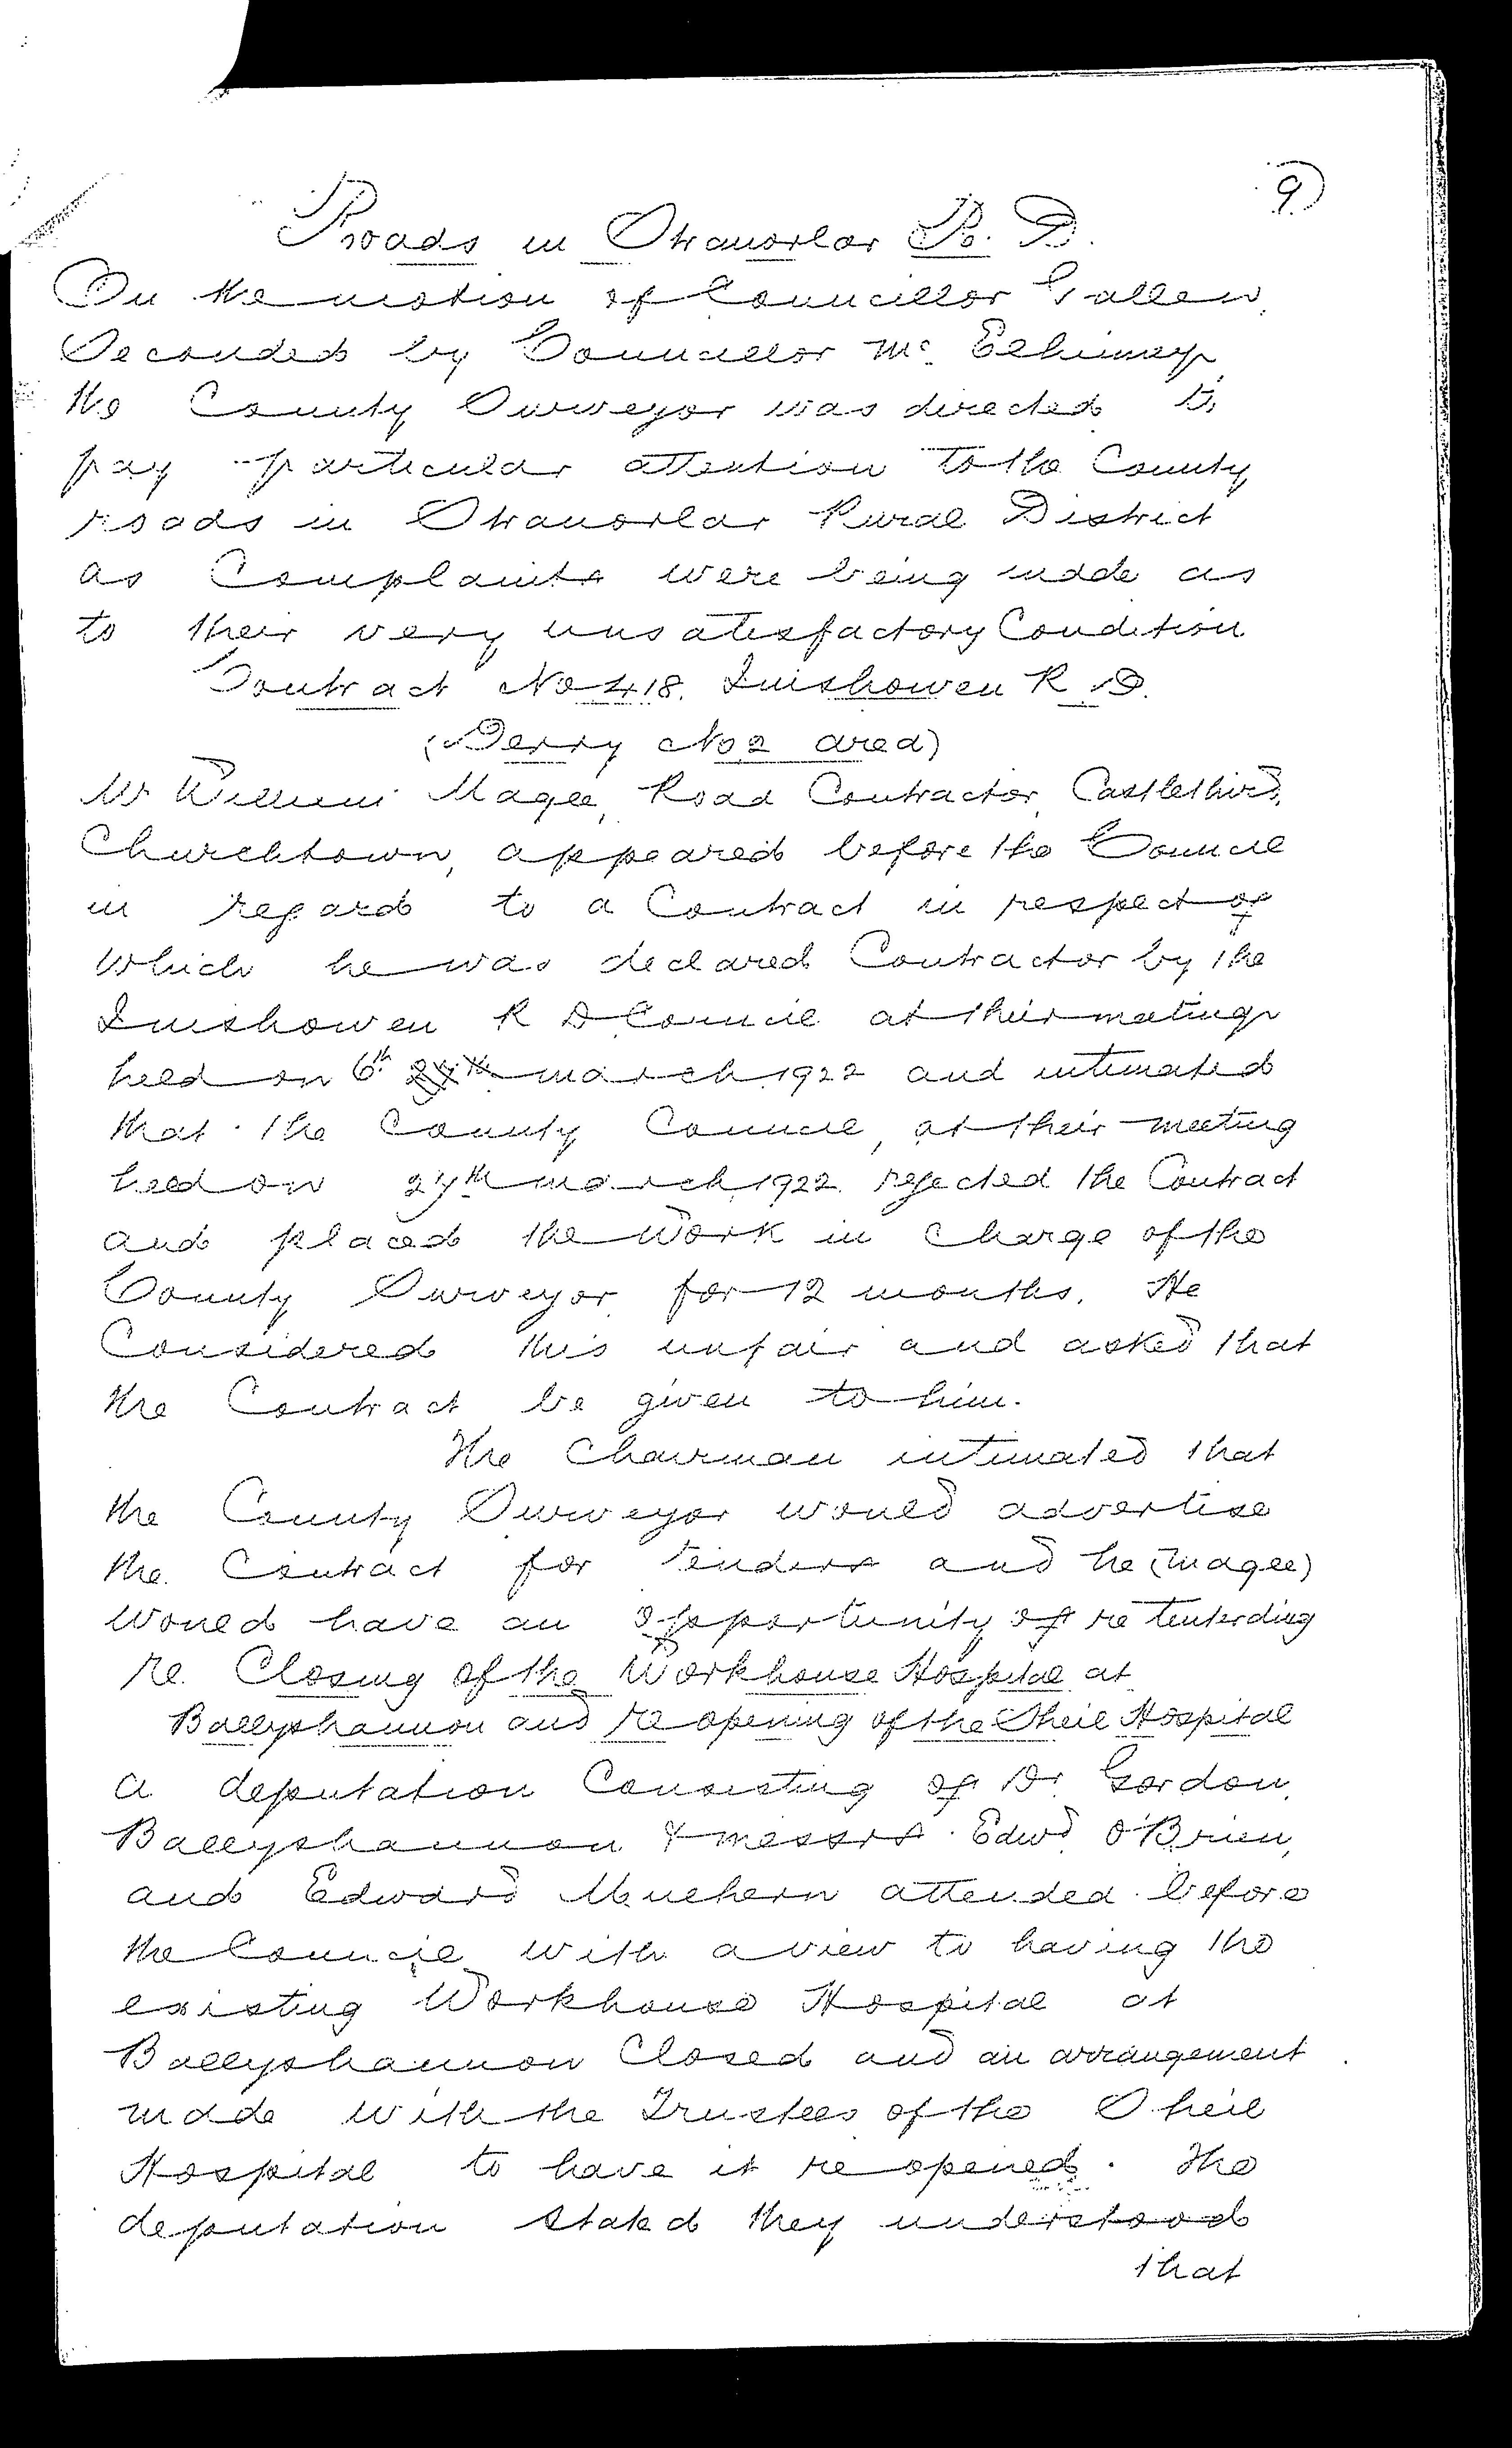 9)
Roads in Stranorlar R. D.
On the motion of Councillor Gallen,
Seconded by Councillor Mc Elhinney,
the County Surveyor was directed to
pay particular attention to the County
roads in Stranorlar Rural District
as Complaints were being made as
to their very unsatisfactory Condition
Contract No 418. Inishowen R. D.
(Derry No 2 area)
Mr William Magee, Road Contractor,
Churchtown, appeared before the Council
in regard to a Contract in respect of
which he was declared Contractor by the
Inishowen R D Council at their meeting
held on 6th 27th march 1922 and intimated
that the County Council, at their meeting
held on 27th march 1922 rejected the Contract
and placed the work in charge of the
County Surveyor for 12 months. He
Considered this unfair and asked that
the Contract be given to him.
The Chairman intimated that
the County Surveyor would advertise
the Contract for tenders and he (Magee)
would have an opportunity of re tenterding
re. Closing of the Workhouse Hospital at
Ballyshannon and re opening of the Sheil Hospital
a deputation Consisting of Dr Gordon,
Ballyshannon & messrs. Edwd O'Brien,
and Edward attended before
the Council with a view to having the
existing Workhouse Hospital at
Ballyshannon Closed and an arrangement
made with the Trustees of the Sheil
Hospital to have it re opened. The
deputation stated they understood
that